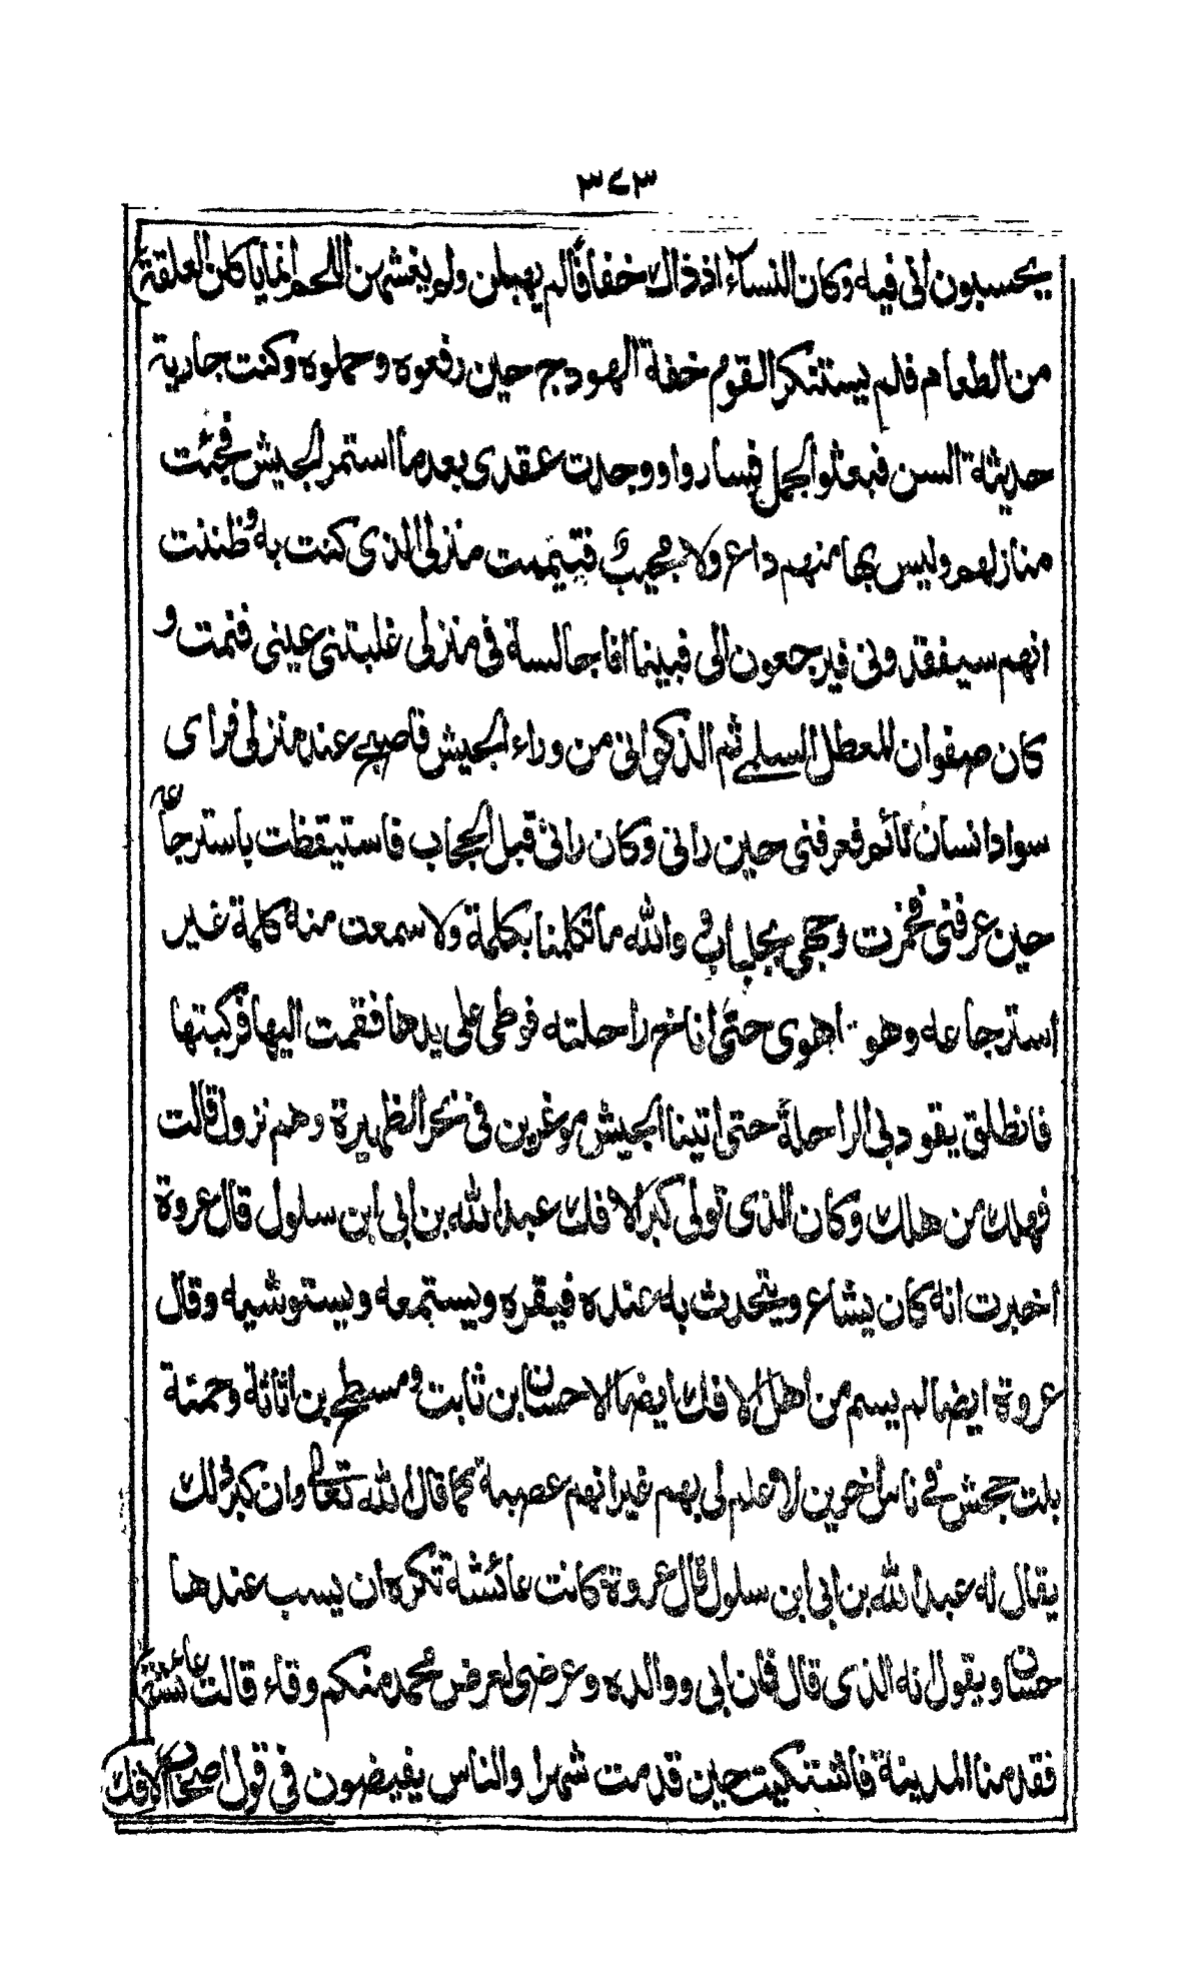 ٣٧٣
يحسبون انى فيه وكان النساء اذ ذاك خفافا لم يهبلن ولم يغشهن اللحم انما ياكلن العلقة
من الطعام فلم يستنكر القوم خفة الهودج حين رفعوه وحملوه وكنت جارية
حديثة السن فبعثوا الجمل فساروا ووجدت عقدى بعد ما استمر الجيش فجئت
منازلهم وليس بها منهم داع ولا مجيب فتيممت منزلى الذى كنت به وظننت
انهم سيفقدونى فيرجعون الى فبينا انا جالسة فى منزلى غلبتنى عينى فنمت و
كان صفوان المعطل السلمى ثم الذكوانى من وراء الجيش فاصبح عند منزلى فراى
سواد انسان نائم فعرفنى حين رانى وكان رانى قبل الحجاب فاستيقظت باسترجاعه
حين عرفنى فخمرت وجهى بجلبابى والله ما تكلمنا بكلمة ولا سمعت منه كلمة غير
استرجاعه وهو اهوى حتى اناخ راحلته فوطى على يدها فقمت اليها فركبتها
فانطلق يقود بى الراحلة حتى اتينا الجيش موغرين فى نحر الظهيرة وهم نزول قالت
فهلك من هلك وكان الذى تولى كبر الافك عبد الله بن ابى ابن سلول قال عروة
اخبرت انه كان يشاع ويتحدث به عنده فيقره ويستمعه ويستوشيه وقال
عروة ايضا لم يسم من اهل الافك ايضا الا حسان ابن ثابت ومسطح بن اثاثة وحمنة
بنت جحش فى ناس اخرين لا علم لى بهم غير انهم عصبة كما قال الله تعالى وان كبر ذلك
يقال له عبد الله بن ابى ابن سلول قال عروة كانت عائشة تكره ان يسب عندها
حسان ويقول انه الذى قال فان ابى ووالده وعرضى لعرض محمد منكم وقاء قالت عائشة
فقدمنا المدينة فاشتكيت حين قدمت شهرا والناس يفيضون فى قول اصحاب الافك